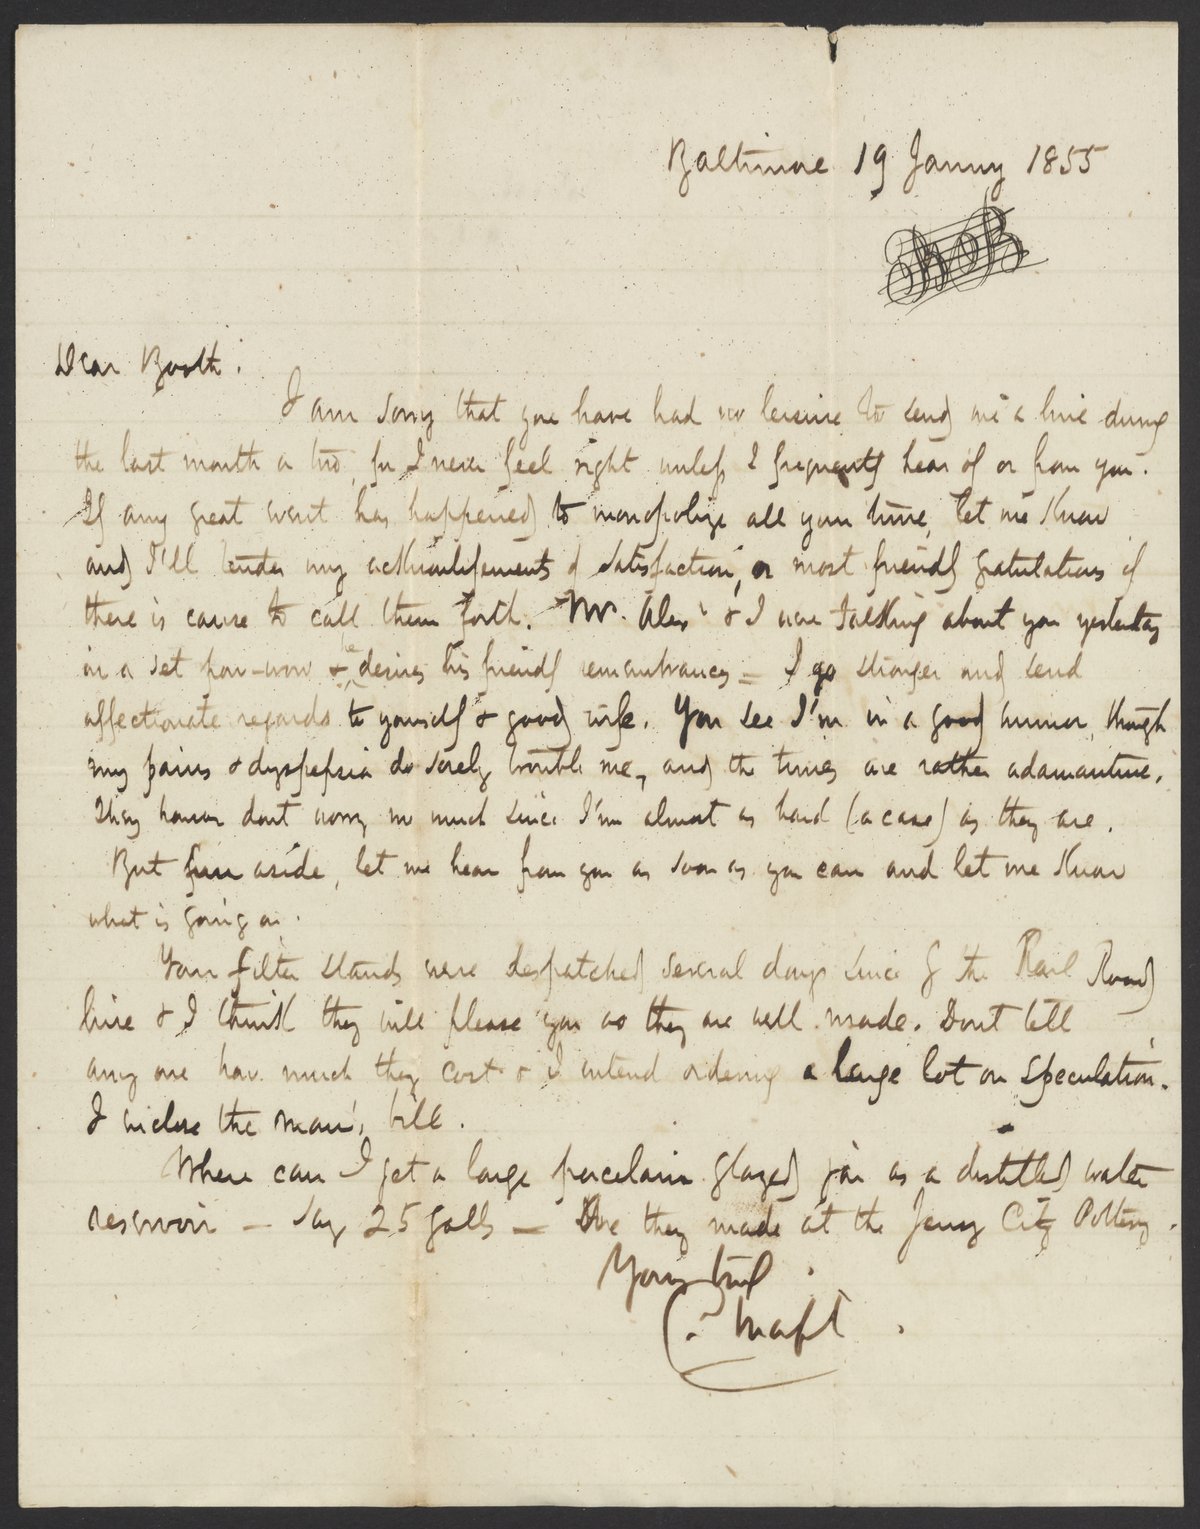 Baltimore 19 Janny 1855
Dear Booth:
I am sorry that you have had no leisure to send me a line during
the last month or two, for I never feel right unless I frequently hear of or from you.
If any great event has happened to monopolize all your time, let me know
and I'll tender my acknowledgements of satisfaction, or most friendly gratulations if
there is cause to call them forth. Mr. Alexr & I were talking about you yesterday
in a set pow-wow & he desires his friendly remembrances = I go stronger and send
affectionate regards to yourself & good wife. You see I'm in a good humor, though
my pains & dyspepsia do sorely trouble me, and the times are rather adamantine.
They however dont worry me much since I'm almost as hard (a case) as they are.
But fun aside, let me hear from you as soon as you can and let me know
what is going on.
Your filter stands were despatched several days since by the Rail Road
line & I think they will please you as they are well made. Dont tell
any one how much they cost & I intend ordering a large lot on speculation.
I inclose the man's bill.
Where can I get a large porcelain glazed jar as a distilled water
reservoir — Say 25 galls — Are they made at the Jersey City Pottery.
Yours truly
C. Morfit